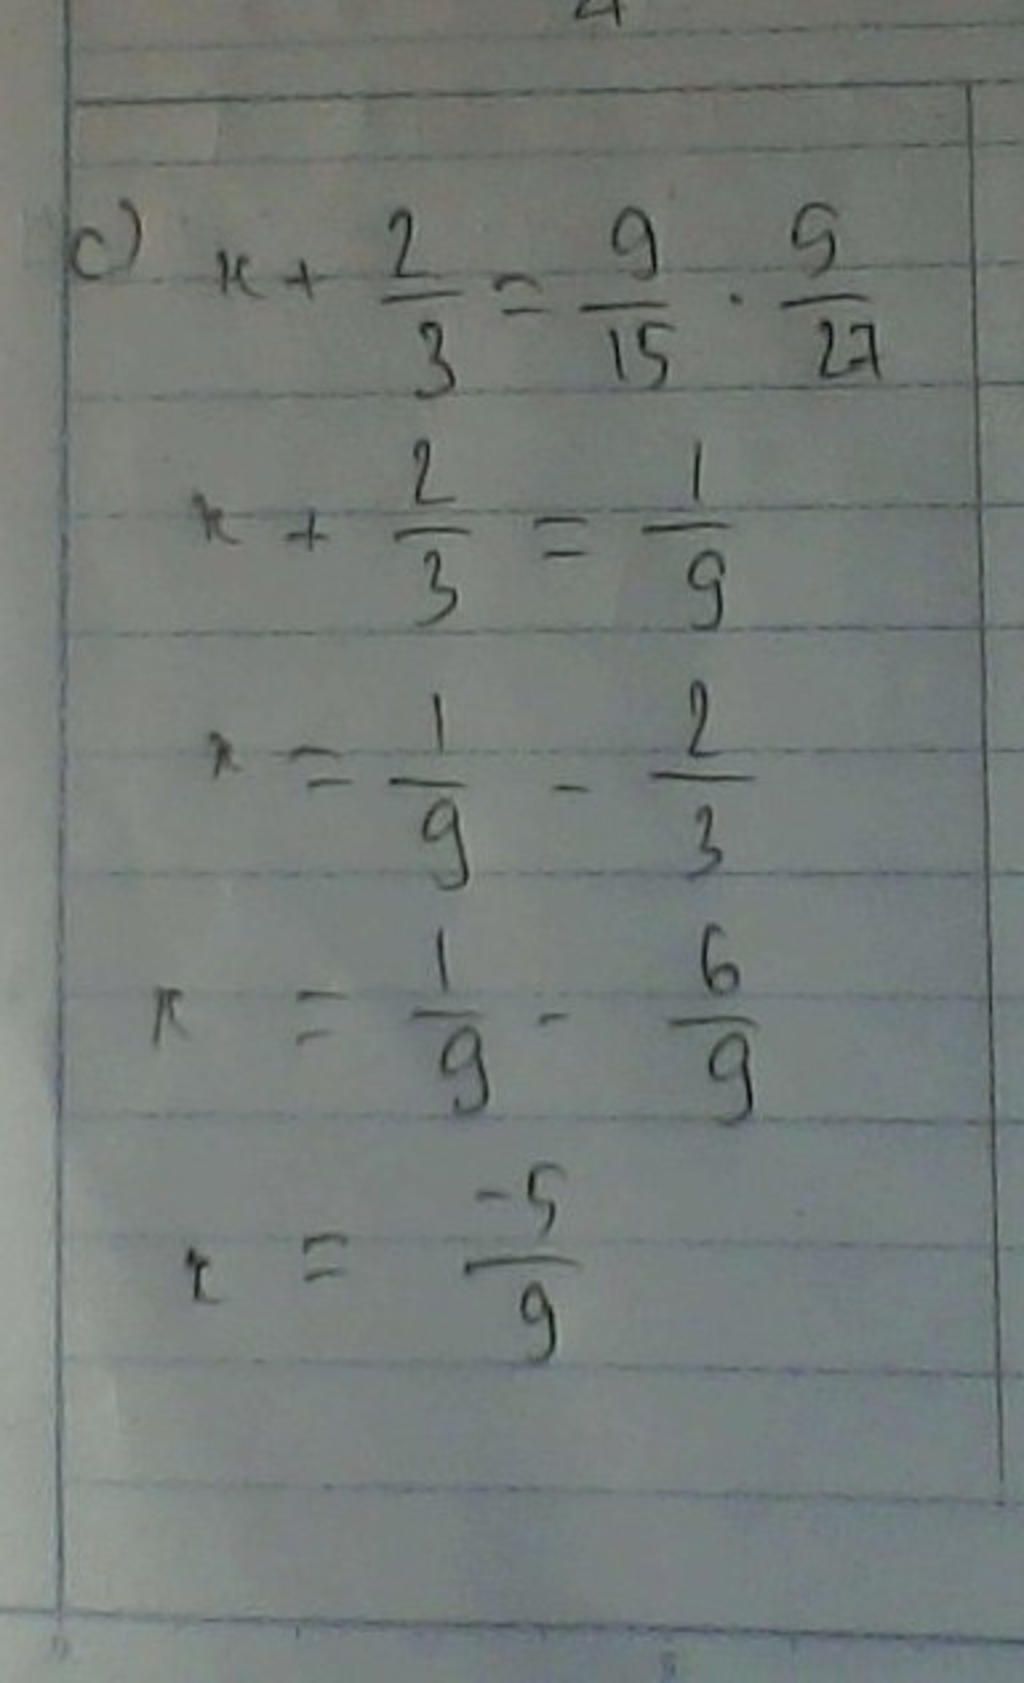 c) x + 2/3 = 9/15 . 5/27
x + 2/3 = 1/9
x = 1/9 - 2/3
x = 1/9 - 6/9
x = -5/9